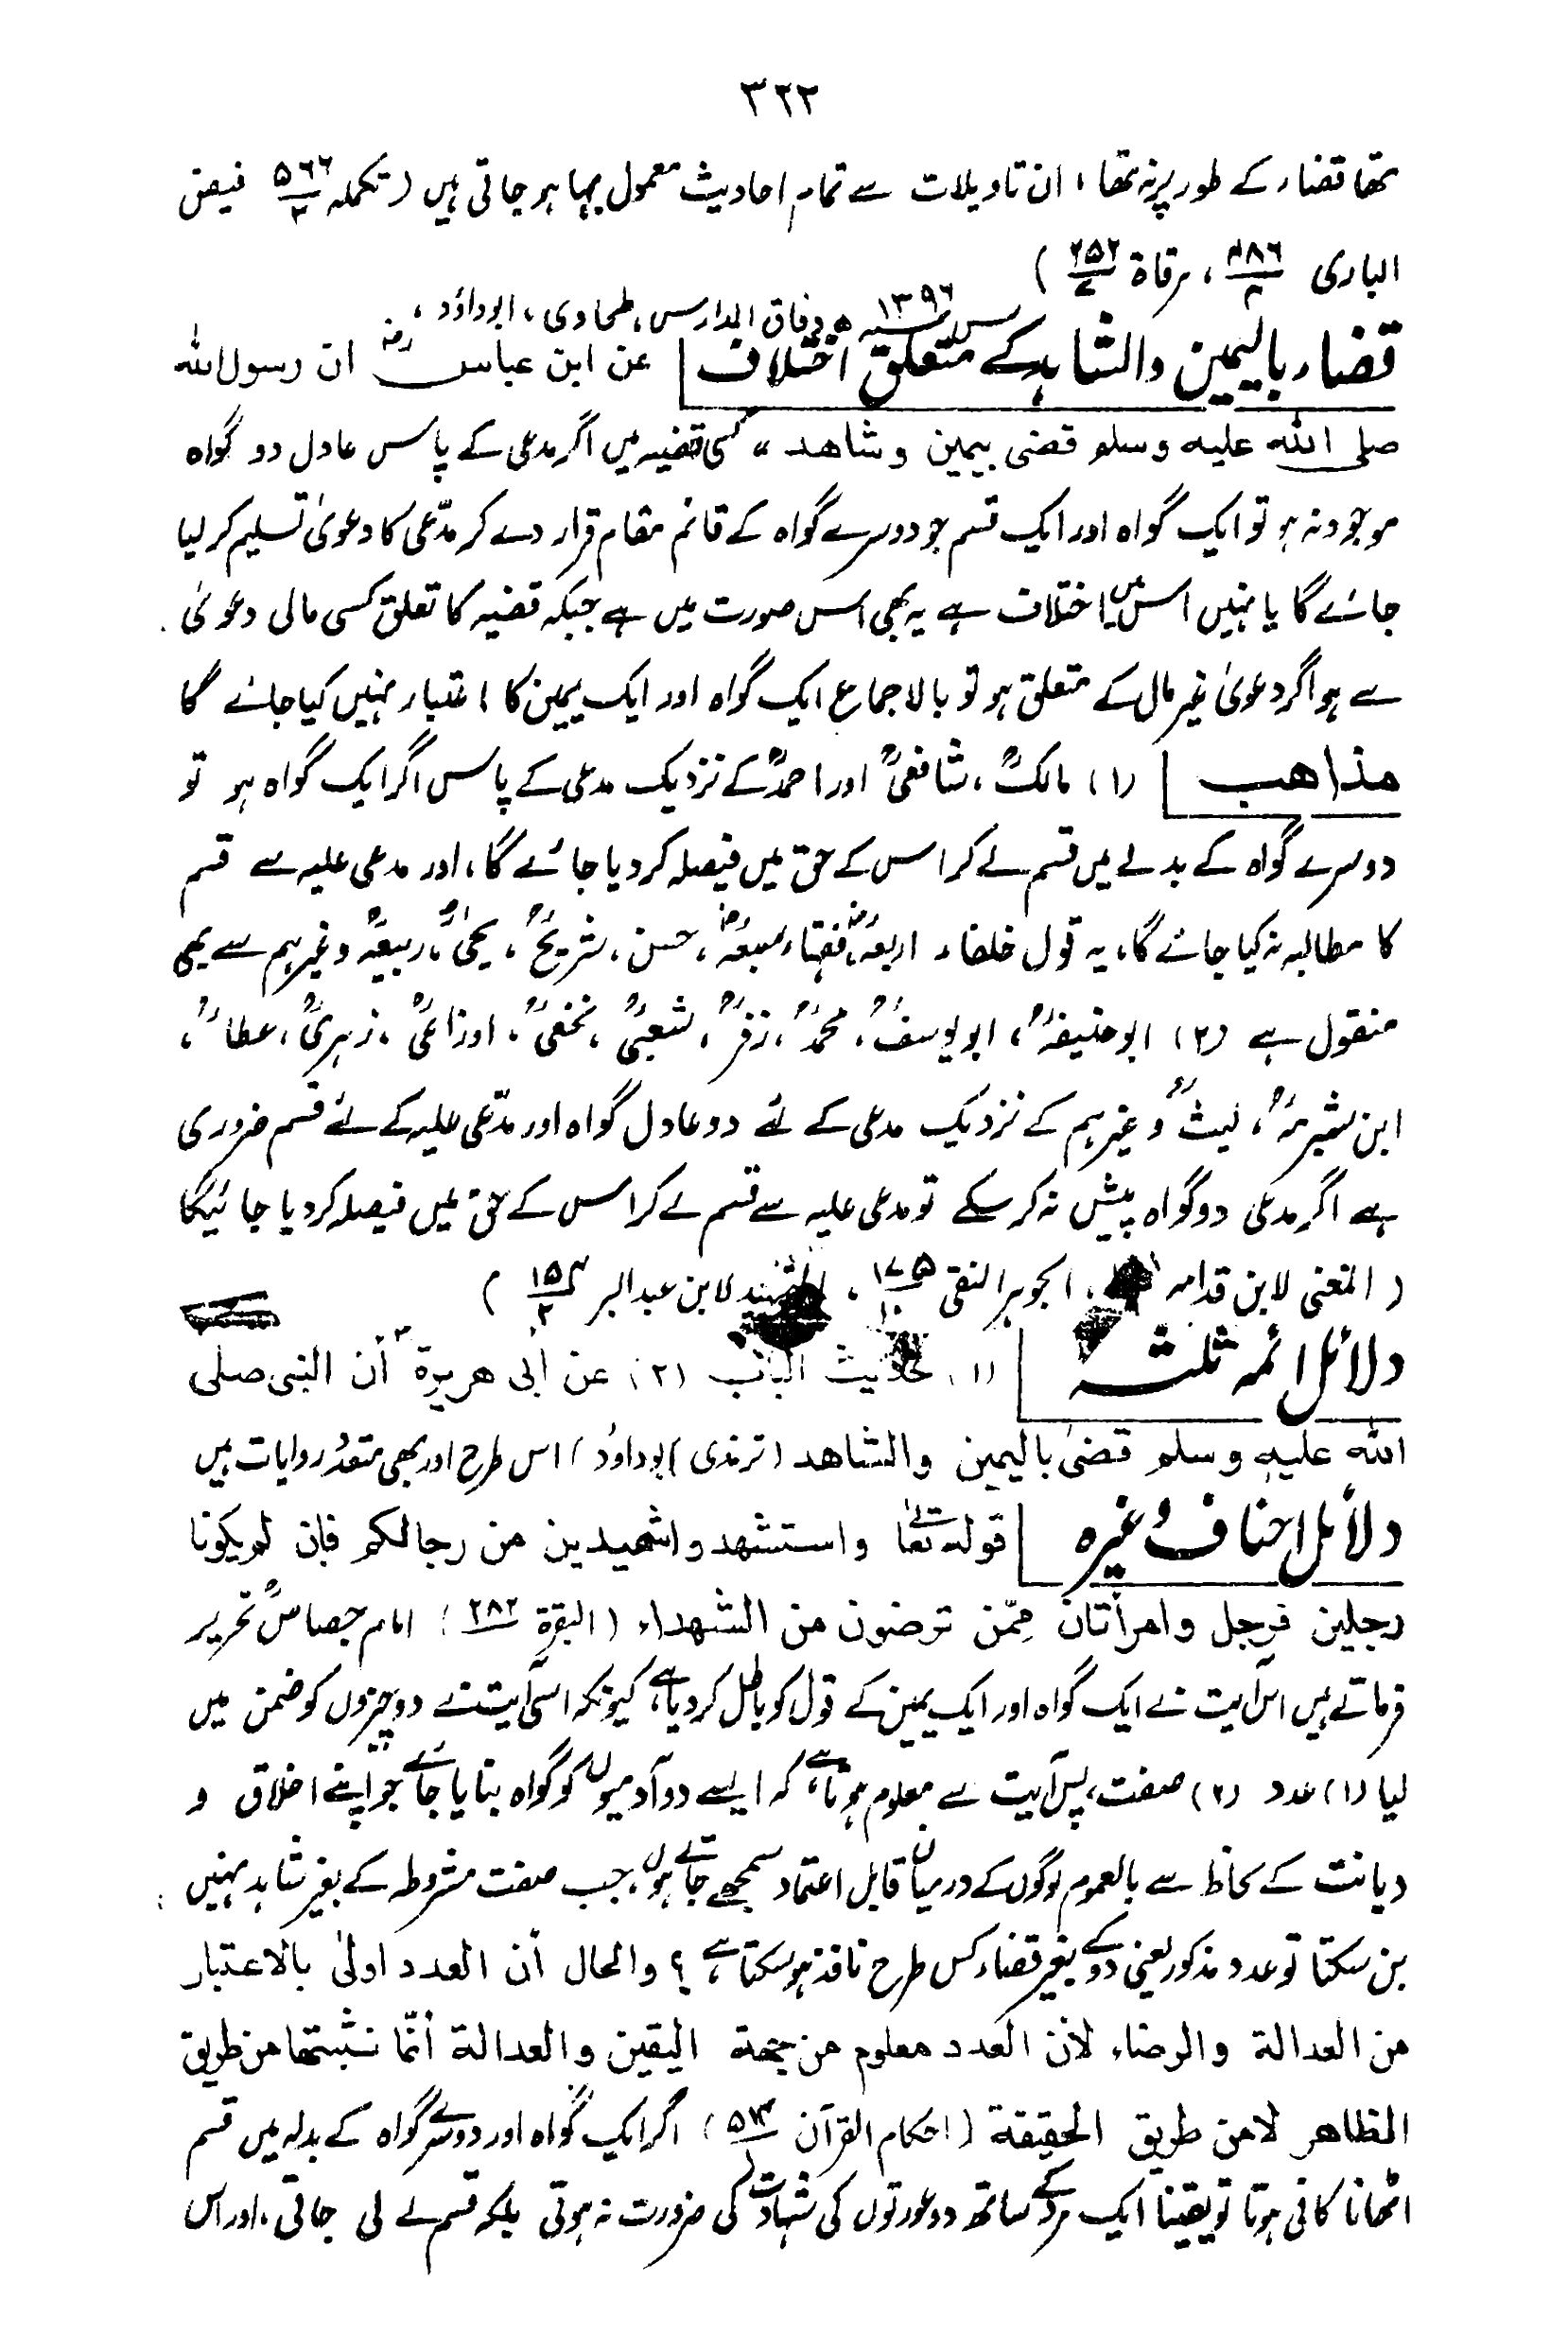 ٣٢٢
تھا قضاء کے طور پر نہ تھا ، ان تاویلات سے تمام احادیث معمول بہا ہو جاتی ہیں ( تکملہ ۵۶۶/۲ فیض
الباری ، مرقاة ۲۵۲/۷ )
سن ۱۳۹۶ھ وفاق المدارس ، طحاوی ، ابوداؤد ،
قضاء بالیمین والشاہد کے متعلق اختلاف عن ابن عباس رض ان رسول اللہ
صلی اللہ علیہ وسلم قضی بیمین وشاهد ،، کسی قضیہ میں اگر مدعی کے پاس عادل دو گواہ
موجود نہ ہو تو ایک گواہ اور ایک قسم جو دوسرے گواہ کے قائم مقام قرار دے کر مدّعی کا دعویٰ تسلیم کر لیا
جائے گا یا نہیں اس میں اختلاف ہے یہ بھی اس صورت میں ہے جبکہ قضیہ کا تعلق کسی مالی دعویٰ
سے ہو اگر دعویٰ غیر مال کے متعلق ہو تو بالاجماع ایک گواہ اور ایک یمین کا اعتبار نہیں کیا جائے گا
مذاهب (۱) مالکؒ ، شافعیؒ اور احمدؒ کے نزدیک مدعی کے پاس اگر ایک گواہ ہو تو
دوسرے گواہ کے بدلے میں قسم لے کر اس کے حق میں فیصلہ کر دیا جائے گا ، اور مدعی علیہ سے قسم
کا مطالبہ نہ کیا جائے گا ، یہ قول خلفاء اربعہؓ ، فقہاء سبعہؒ ، حسن ، شریحؒ ، یحییٰؒ ، ربیعہؒ وغیرہم سے بھی
منقول ہے (۲) ابوحنیفہؒ ، ابویوسفؒ ، محمدؒ ، زفرؒ ، شعبیؒ ، نخعیؒ ، اوزاعیؒ ، زہریؒ ، عطاءؒ ،
ابن شبرمہؒ ، لیثؒ وغیرہم کے نزدیک مدعی کے لئے دو عادل گواہ اور مدّعی علیہ کے لئے قسم ضروری
ہے اگر مدعی دو گواہ پیش نہ کر سکے تو مدعی علیہ سے قسم لے کر اس کے حق میں فیصلہ کر دیا جائیگا
( المغنی لابن قدامہ ، الجوہر النقی ۱۷۵/۱۰ ، التمہید لابن عبدالبر ۱۵۴/۲ )
دلائل ائمہ ثلثہ (۱) حدیث الباب (۲) عن أبی هریرة رض أن النبی صلی
اللہ علیہ وسلم قضیٰ بالیمین والشاهد ( ترمذی ) ابوداود ) اس طرح اور بھی متعدد روایات ہیں
دلائل احناف وغیرہ قولہ تعالے واستشهدوا شهیدین من رجالکم فإن لم یکونا
رجلین فرجل وامرأتان ممّن ترضون من الشهداء ( البقرة ۲۸۲ ) امام جصاصؒ تحریر
فرماتے ہیں اس آیت نے ایک گواہ اور ایک یمین کے قول کو باطل کر دیا ہے ، کیونکہ اسی آیت نے دو چیزوں کو ضمن میں
لیا (۱) عدد (۲) صفت ، پس آیت سے معلوم ہوتا ہے ، کہ ایسے دو آدمیوں کو گواہ بنایا جائے جو اپنے اخلاق و
دیانت کے لحاظ سے بالعموم لوگوں کے درمیان قابل اعتماد سمجھے جاتے ہوں ، جب صفت مشروطہ کے بغیر شاہد نہیں
بن سکتا تو عدد مذکور یعنی دو کے بغیر قضاء کس طرح نافذ ہو سکتا ہے ؟ والحال أن العدد اولیٰ بالاعتبار
من العدالة والرضاء لأن العدد معلوم من جهة الیقین والعدالة أنّما نثبتها من طریق
الظاهر لا من طریق الحقیقة ( احکام القرآن ۵۱۴/۱ ) اگر ایک گواہ اور دوسرے گواہ کے بدلہ میں قسم
اٹھانا کافی ہوتا تو یقینا ایک مرد کے ساتھ دو عورتوں کی شہادت کی ضرورت نہ ہوتی بلکہ قسم لے لی جاتی ، اور اس